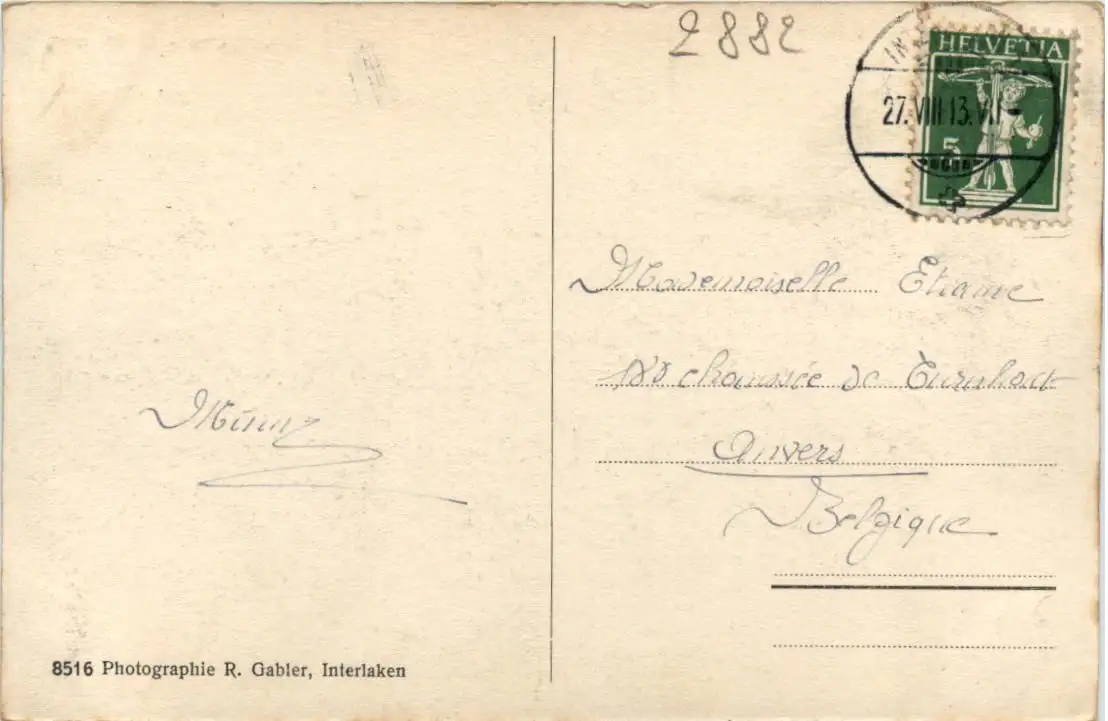 2882
HELVETIA
27.VIII 13.VII
5
Mademoiselle
chaussée de Turnhout
Anvers
Belgique
8516 Photographie R. Gabler, Interlaken